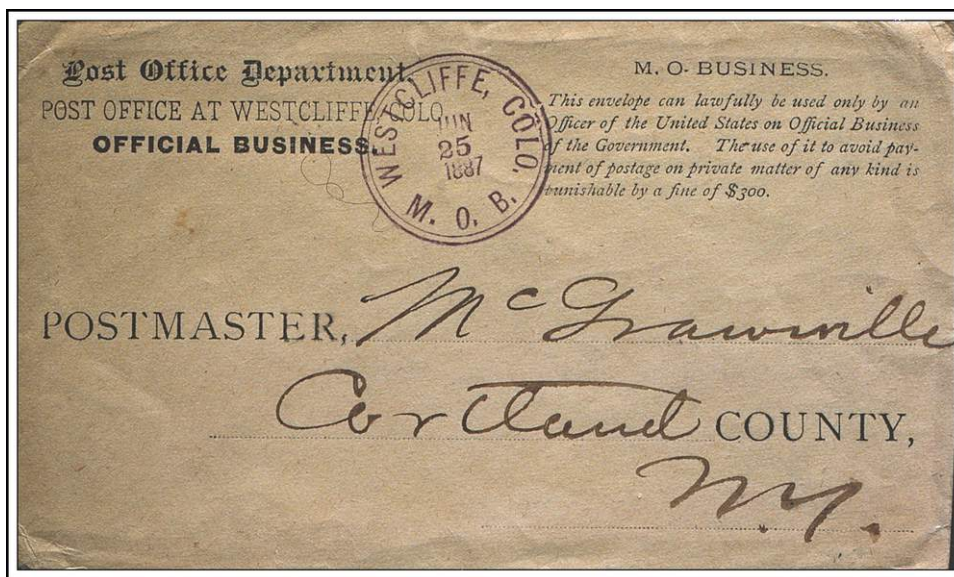 Post Office Department,
POST OFFICE AT WESTCLIFFE, COLO.
OFFICIAL BUSINESS.
WESTCLIFFE, COLO.
JUN
25
1887
M. O. B.
M. O. BUSINESS.
This envelope can lawfully be used only by an
Officer of the United States on Official Business
of the Government. The use of it to avoid pay-
ment of postage on private matter of any kind is
punishable by a fine of $300.
POSTMASTER, McGrawville
Cortland COUNTY,
N.Y.